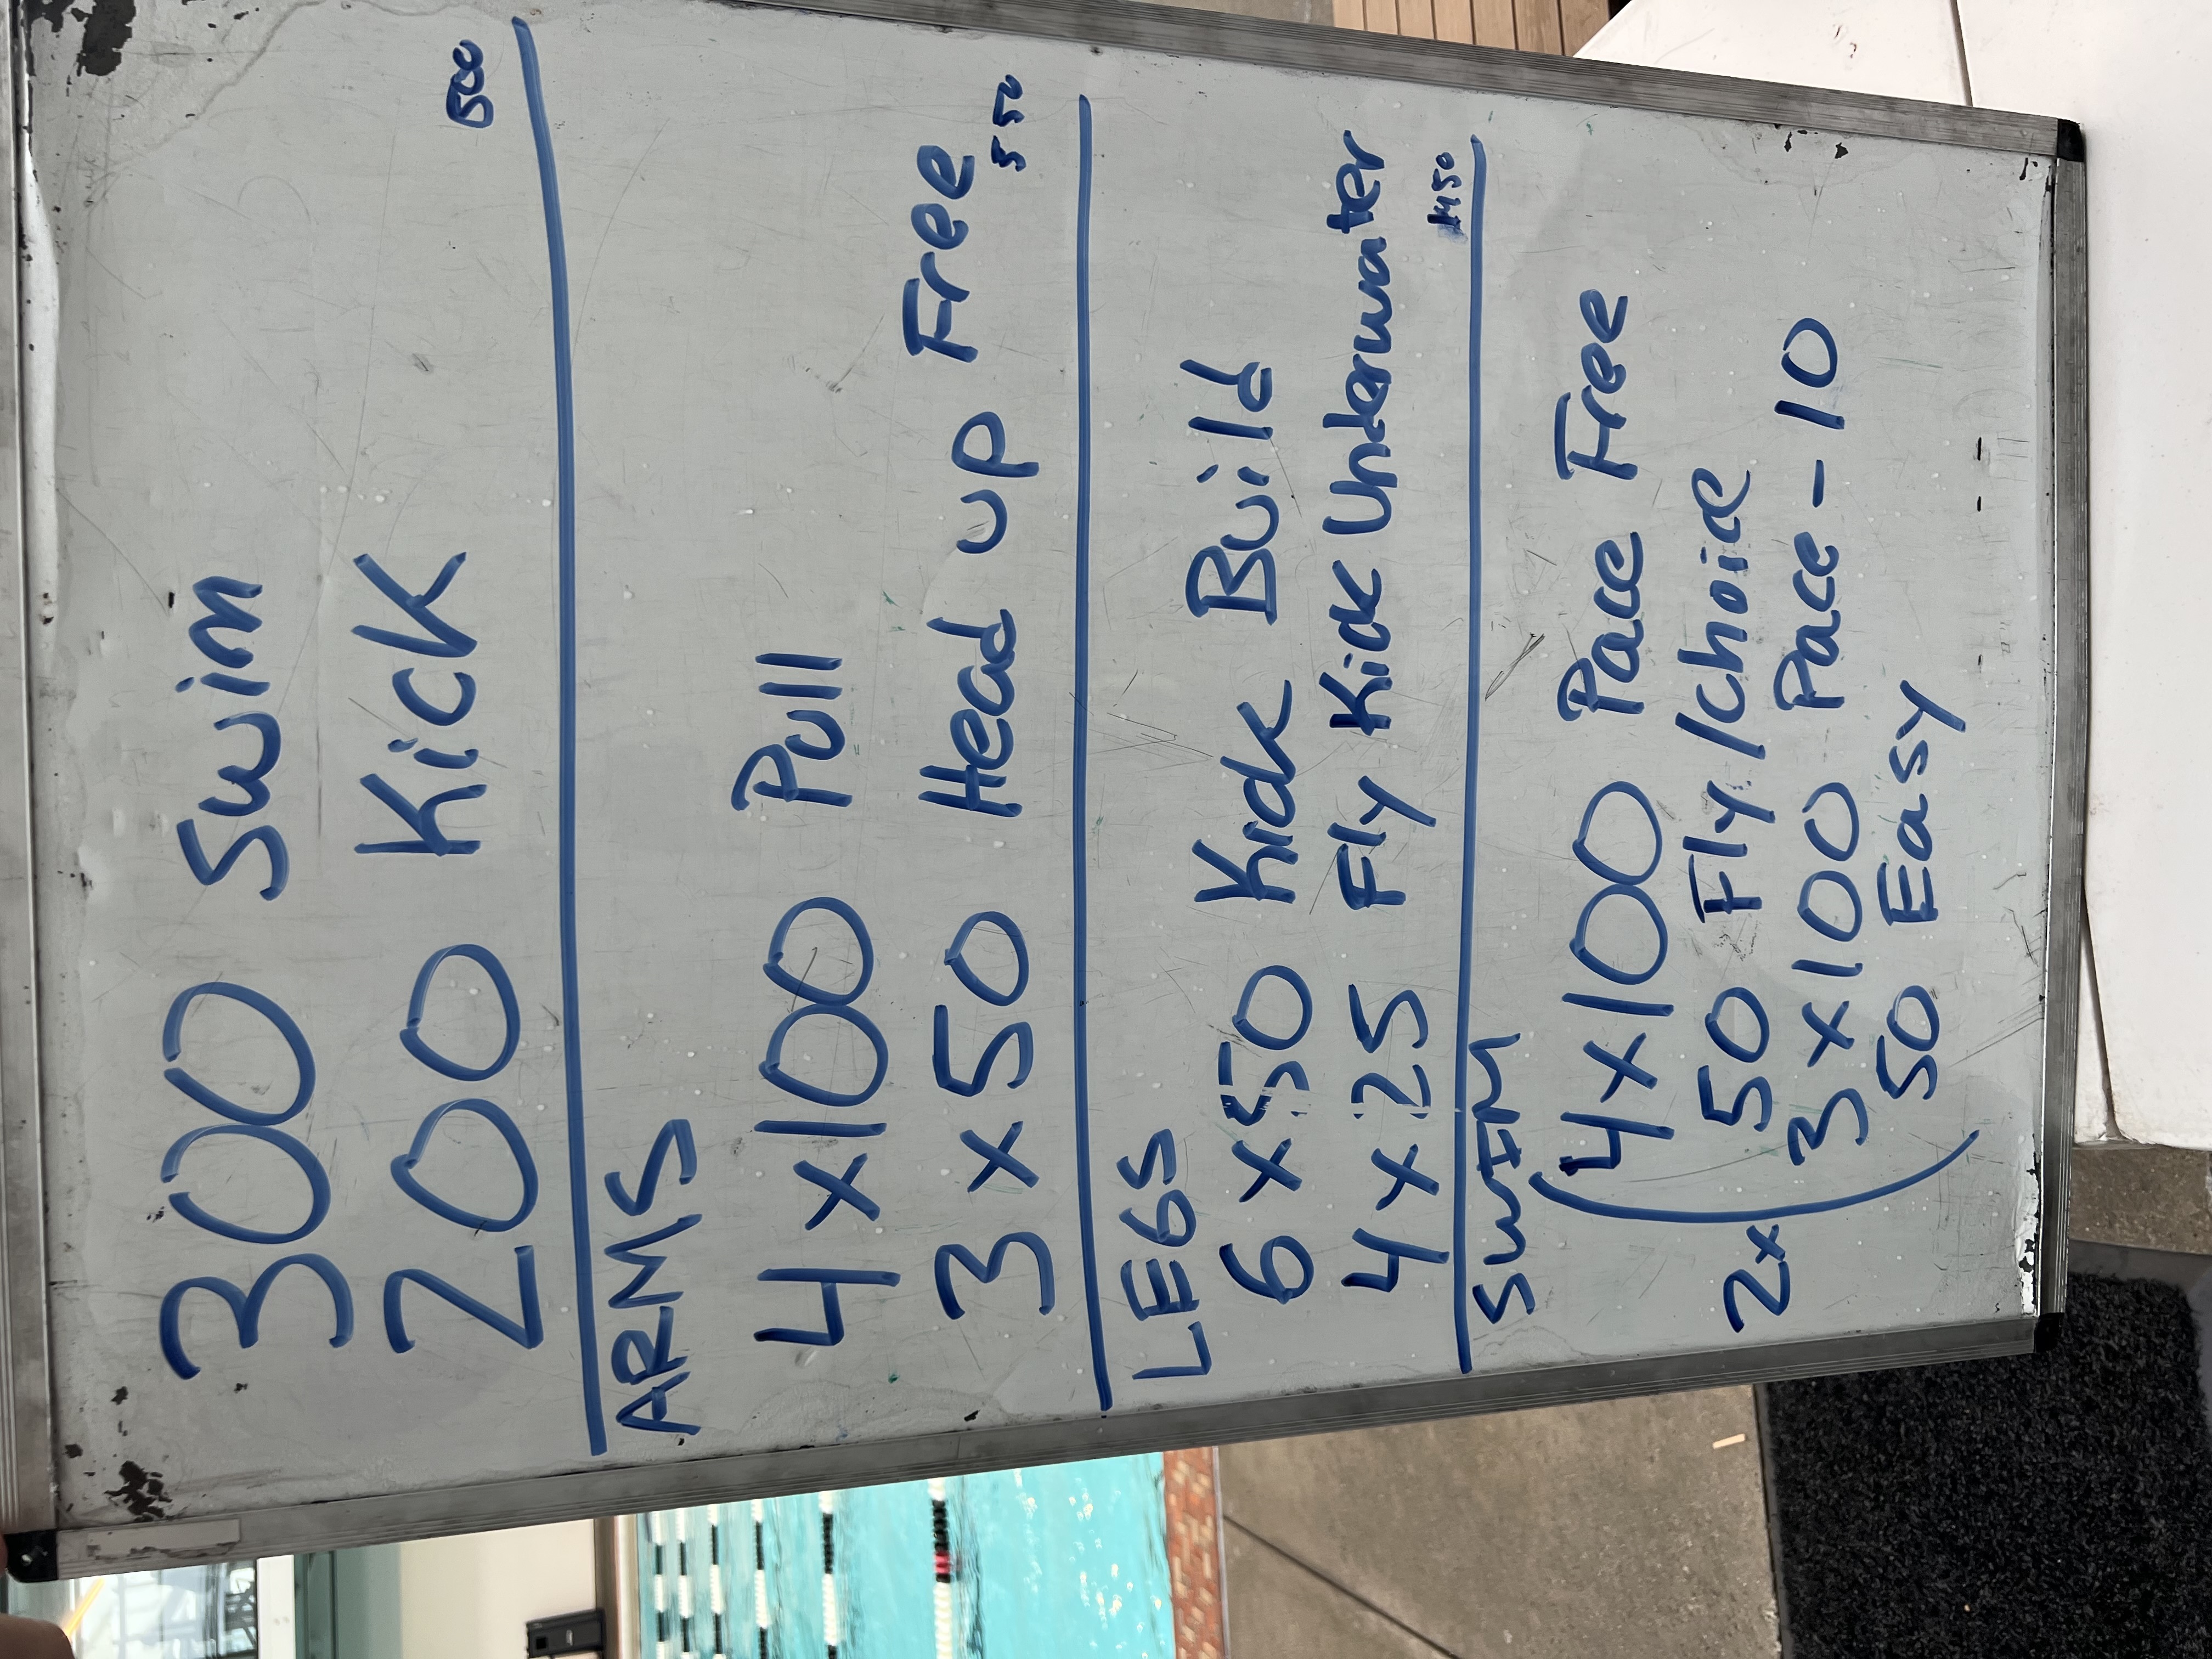 300 Swim
200 Kick
500
ARMS
4x100 Pull
3x50 Head up Free
550
LEGS
6x50 Kick Build
4x25 Fly Kick Underwater
1450
SWIM
2x(4x100 Pace Free
50 Fly/Choice
3x100 Pace-10
50 Easy